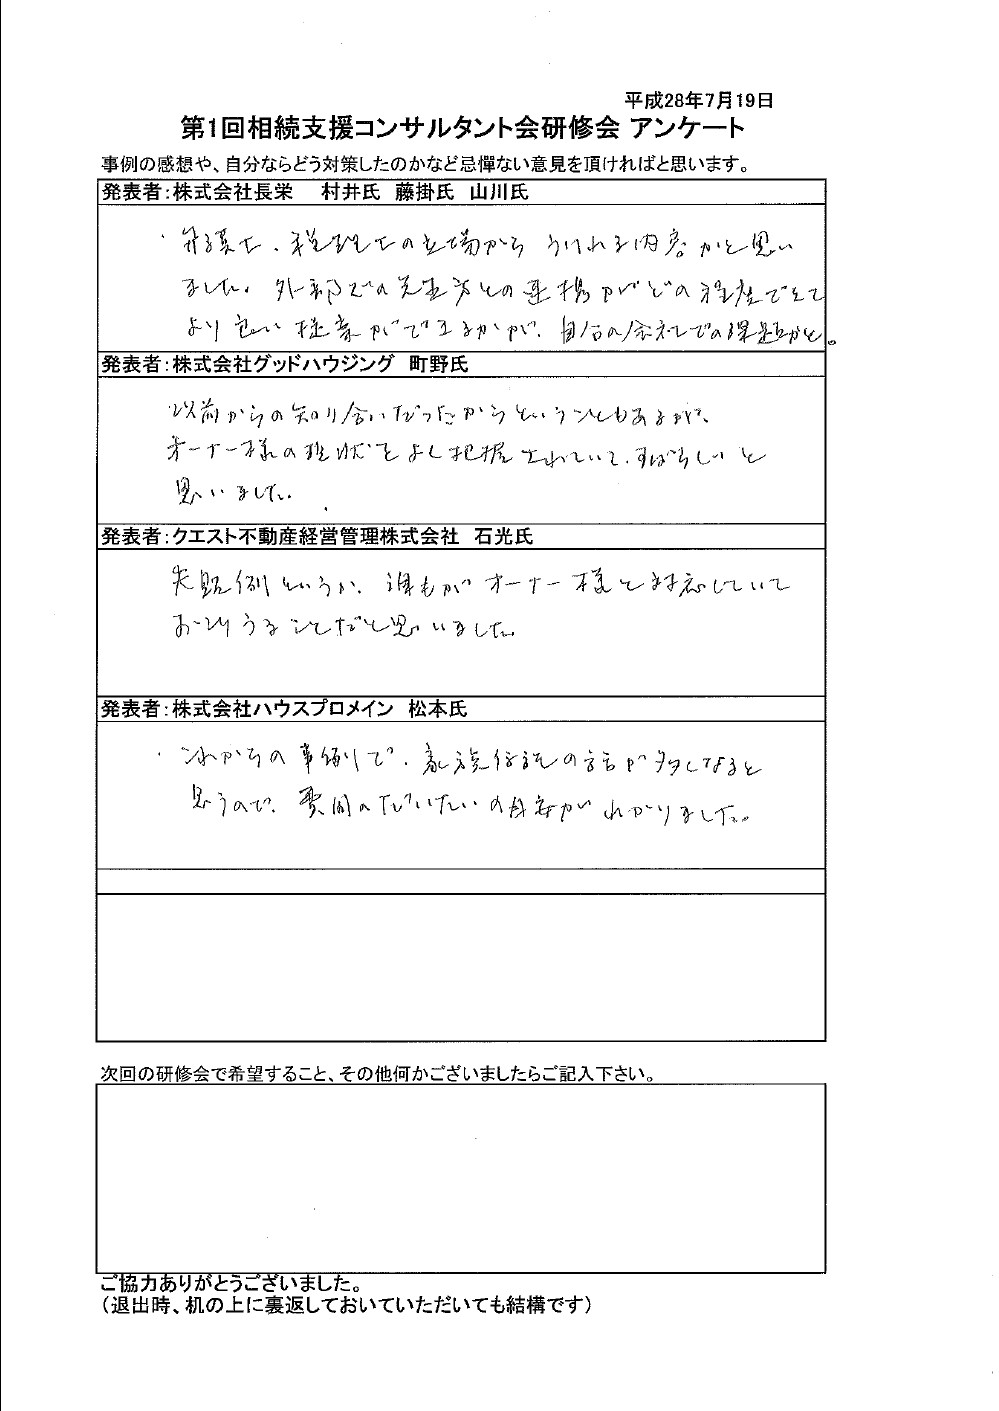 平成28年7月19日
第1回相続支援コンサルタント会研修会 アンケート
事例の感想や、自分ならどう対策したのかなど忌憚ない意見を頂ければと思います。
発表者：株式会社長栄　村井氏　藤掛氏　山川氏
・弁護士、税理士の立場から うけれる内容かと思い
ました。外部での先生方との連携がどの程度できて
より良い提案ができるかが、自分の会社での課題かと。
発表者：株式会社グッドハウジング　町野氏
以前からの知り合いだったからということもあるが、
オーナー様の現状をよく把握されていて、すばらしいと
思いました。
発表者：クエスト不動産経営管理株式会社　石光氏
失敗例というか、誰もがオーナー様と対応していて
おこりうることだと思いました。
発表者：株式会社ハウスプロメイン　松本氏
・これからの事例で、家族信託の話が多くなると
思うので、費用のだいたいの目安がわかりました。
次回の研修会で希望すること、その他何かございましたらご記入下さい。
ご協力ありがとうございました。
（退出時、机の上に裏返しておいていただいても結構です）